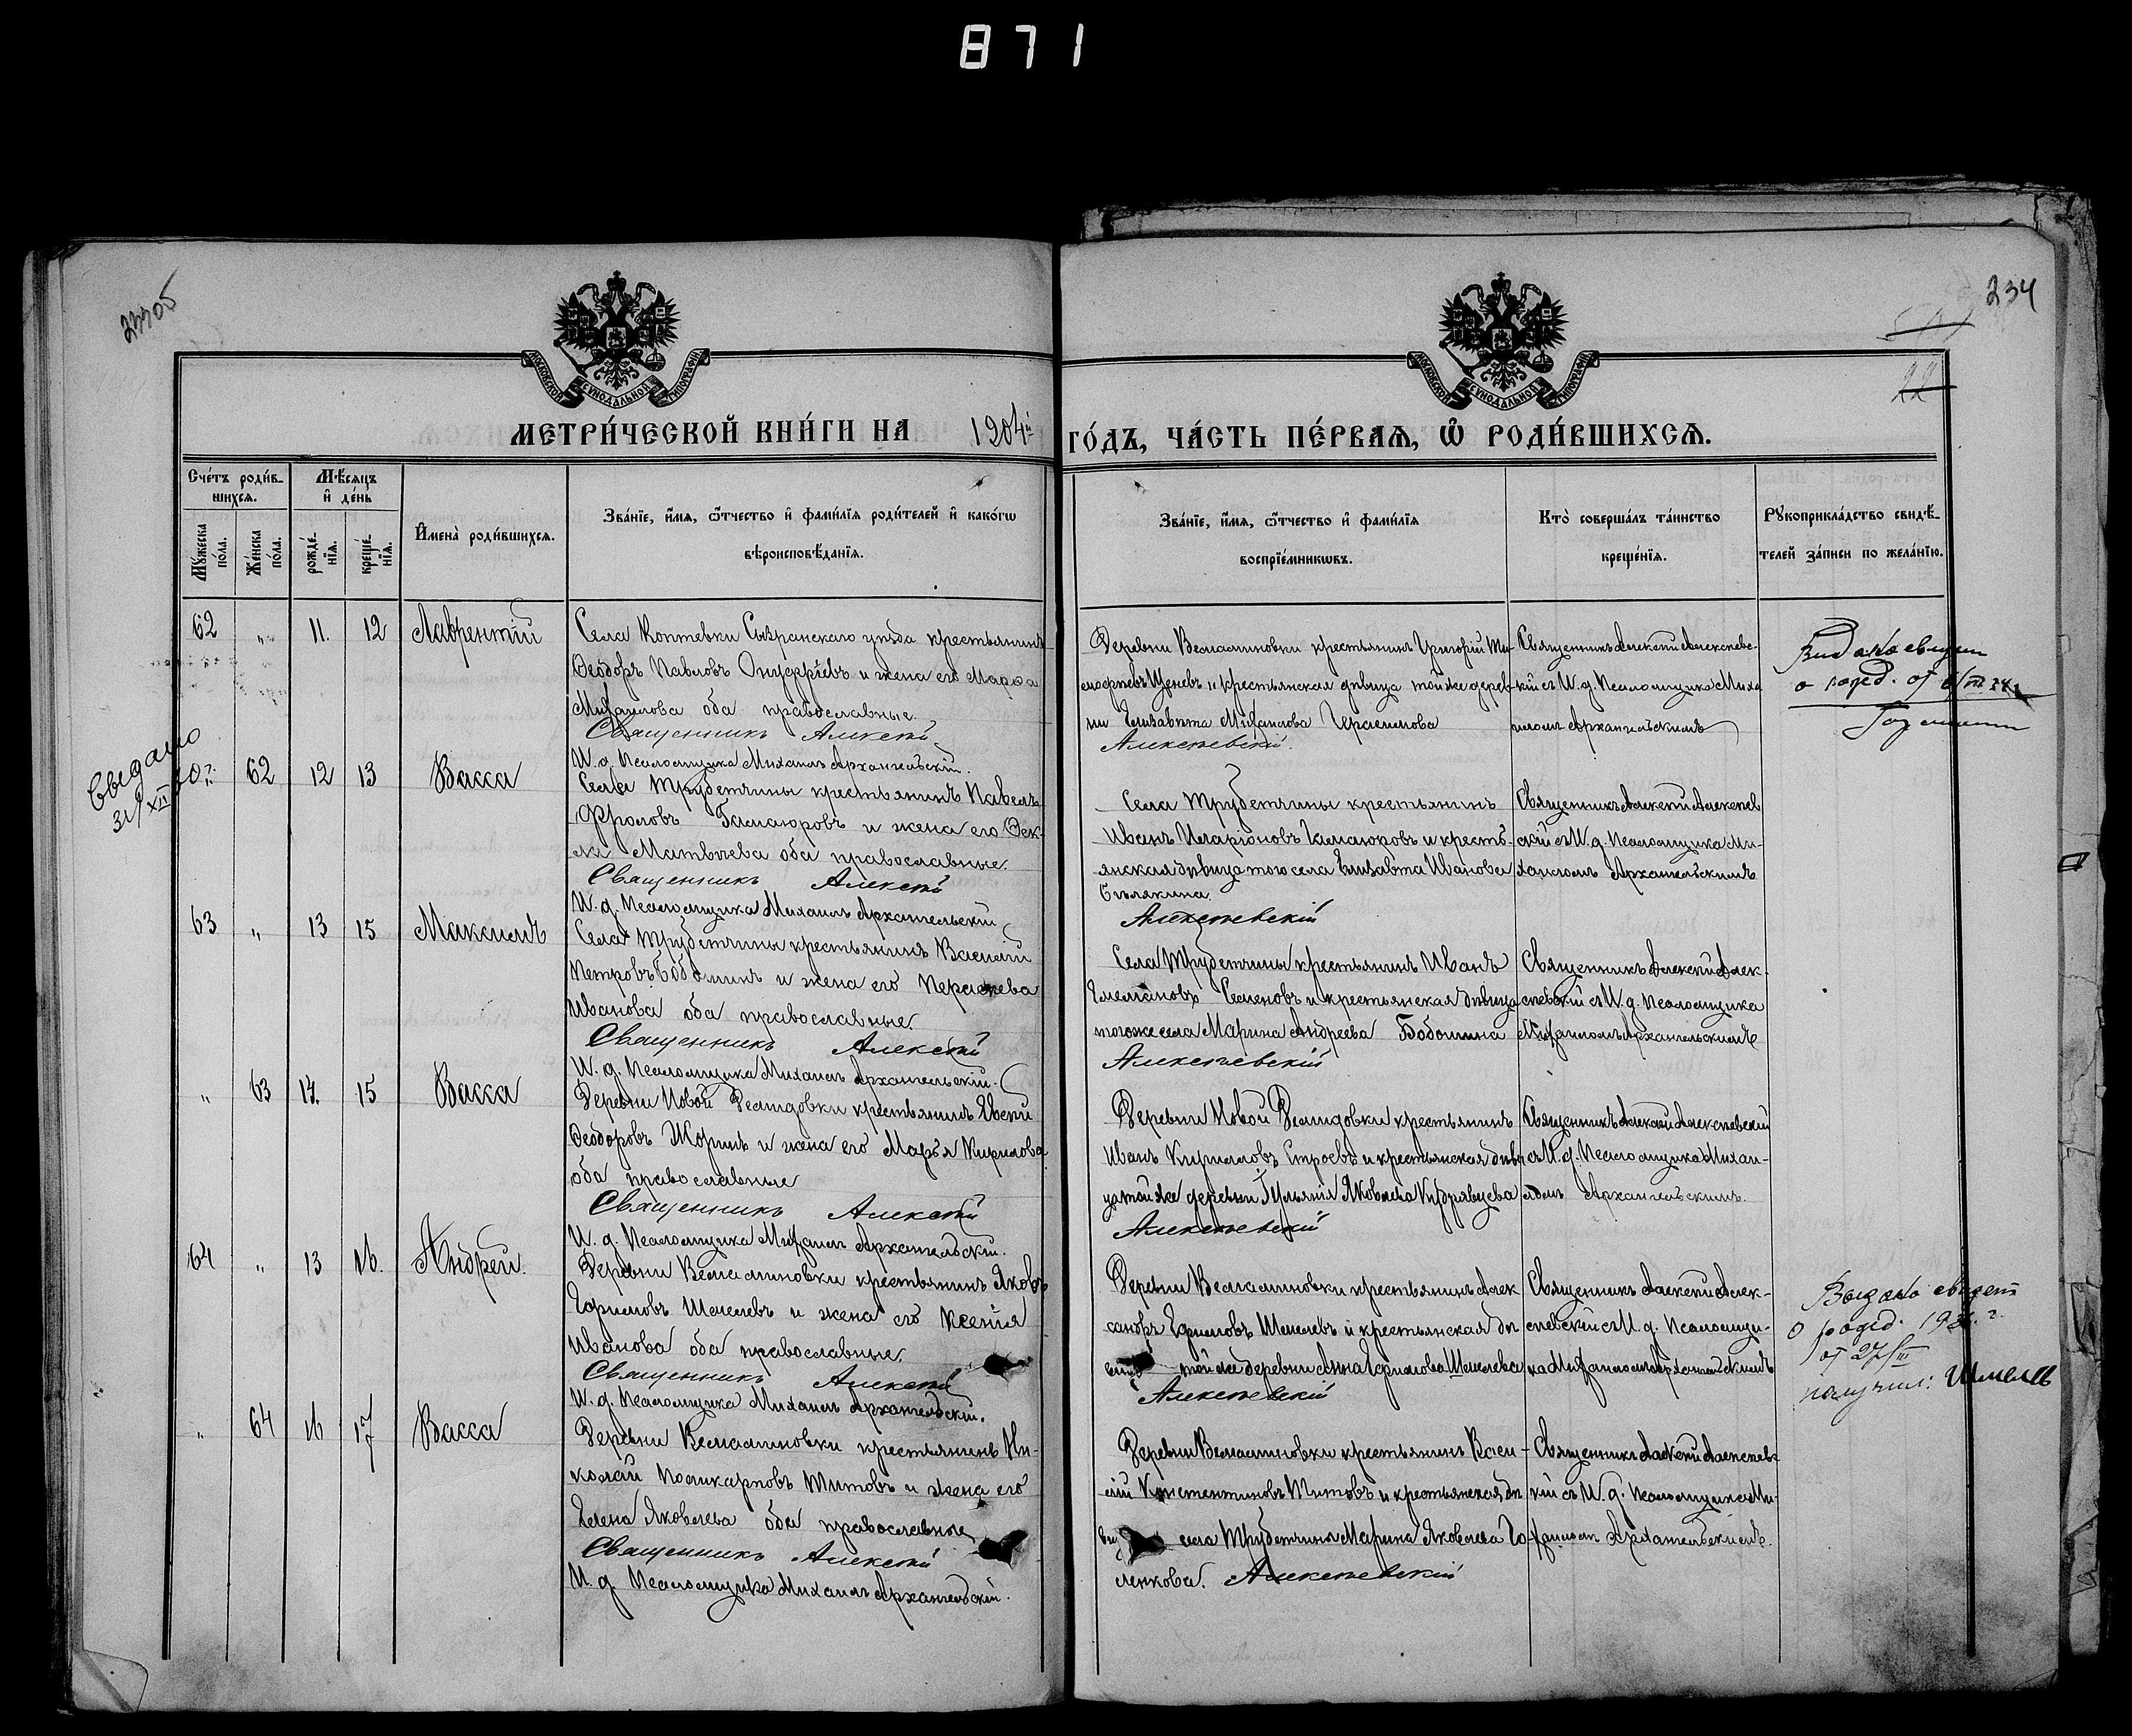 871
234
22
МОСКОВСКОЙ СѴНОДАЛЬНОЙ ТИПОГРАФІИ
МОСКОВСКОЙ СѴНОДАЛЬНОЙ ТИПОГРАФІИ
МЕТРИ́ЧЕСКОЙ КНИ́ГИ НА 1904й ГО́ДЪ, ЧА́СТЬ ПЕ́РВАѦ, Ѡ РОДИ́ВШИХСѦ.
Сче́тъ роди́в-
шихсѧ.
Мꙋ́жеска по́ла.
Же́нска по́ла.
Мѣ́сяцъ и҆ де́нь
рожде́-нїѧ.
креще́-нїѧ.
И҆мена̀ роди́вшихсѧ.
Зва́нїе, и҆́мѧ, ѻ҆́тчество и҆ фами́лїѧ роди́телей и҆ како́гѡ
вѣроисповѣ́данїѧ.
Зва́нїе, и҆́мѧ, ѻ҆́тчество и҆ фами́лїѧ
воспрїе́мникѡвъ.
Кто̀ соверша́лъ та́инство
креще́нїѧ.
Рꙋкоприкла́дство свидѣ́-
телей за́писи по жела́нїю.
62 " 11. 12 Лаврентій
Села Коптевки Сызранскаго уѣзда крестьянинъ
Ѳеодоръ Павловъ Онуфріевъ и жена его Марѳа
Михаилова оба православные.
Священникъ Алексѣй
И. д. Псаломщика Михаилъ Архангельскій.
Деревни Вельяминовки крестьянинъ Григорій Ти-
моѳеевъ и крестьянская дѣвица той же дерев-
ни Елизавета Михаилова Герасимова
Алексѣевскій.
Священникъ Алексѣй Алексѣевс-
кій съ И. д. Псаломщика Миха
иломъ Архангельскимъ
Выдано
о рожд. от
Выдано
31/XII
62 12 13 Васса
Села Трубетчины крестьянинъ Павелъ
Фроловъ Гамаюровъ и жена его Ѳек-
ла Матвѣева оба православные.
Священникъ Алексѣй
И. д. Псаломщика Михаилъ Архангельскій
Села Трубетчины крестьянинъ
Иванъ Иларіоновъ Гамаюровъ и кресть-
янская дѣвица того села Елизавета Иванова
Бѣлякина.
Алексѣевскій
Священникъ Алексѣй Алексѣев
скій съ И. д. Псаломщика Ми-
хаиломъ Архангельскимъ
63 " 13 15 Максимъ
Села Трубетчины крестьянинъ Василій
Петровъ и жена его Параскева
Иванова оба православные.
Священникъ Алексѣй
И. д. Псаломщика Михаилъ Архангельскій.
Села Трубетчины крестьянинъ Иванъ
Емельяновъ Семеновъ и крестьянская дѣвица
того же села Марина Андреева
Алексѣевскій
Священникъ Алексѣй Алек-
сѣевскій съ И. д. Псаломщика
Михаиломъ Архангельскимъ
" 63 14. 15 Васса
Деревни Новой Демидовки крестьянинъ
Ѳеодоровъ и жена его Марья Кирилова
оба православные
Священникъ Алексѣй
И. д. Псаломщика Михаилъ Архангельскій.
Деревни Новой Демидовки крестьянинъ
Иванъ Кирилловъ Строевъ и крестьянская дѣви
ца той же деревни Іуліанія Яковлева Кудрявцева
Алексѣевскій
Священникъ Алексѣй Алексѣевскій
съ И. д. Псаломщика Михаи-
ломъ Архангельскимъ.
64 " 13 16. Андрей.
Деревни Вельяминовки крестьянинъ Яковъ
Ефимовъ Шмелевъ и жена его Ксенія
Иванова оба православные.
Священникъ Алексѣй
И. д. Псаломщика Михаилъ Архангельскій.
Деревни Вельяминовки крестьянинъ Алек
сандръ Ефимовъ Шмелевъ и крестьянская дѣ
той же деревни Анна Ефимова Шмелева
Алексѣевскій
Священникъ Алексѣй Алек-
сѣевскій съ И. д. Псаломщи-
ка Михаиломъ Архангельскимъ
Выдано свидет
о рожд.
от 27/III
получил: Шмелев
" 64 16 17 Васса
Деревни Вельяминовки крестьянинъ Ни-
колай Поликарповъ Титовъ и жена его
Елена Яковлева оба православные
Священникъ Алексѣй
И. д. Псаломщика Михаилъ Архангельскій.
Деревни Вельяминовки крестьянинъ Васи-
лій Константиновъ Титовъ и крестьянская дѣ
села Трубетчины Марина Яковлева Го-
ленкова. Алексѣевскій
Священникъ Алексѣй Алексѣевс-
кій съ И. д. Псаломщика Ми-
хаиломъ Архангельскимъ.